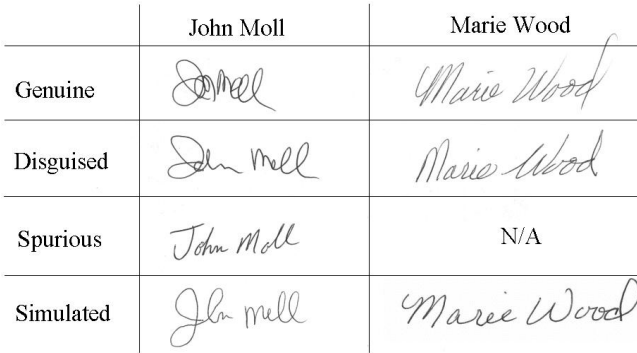 John Moll Marie Wood
Genuine JMoll Marie Wood
Disguised John Moll Marie Wood
Spurious John Moll N/A
Simulated John Moll Marie Wood